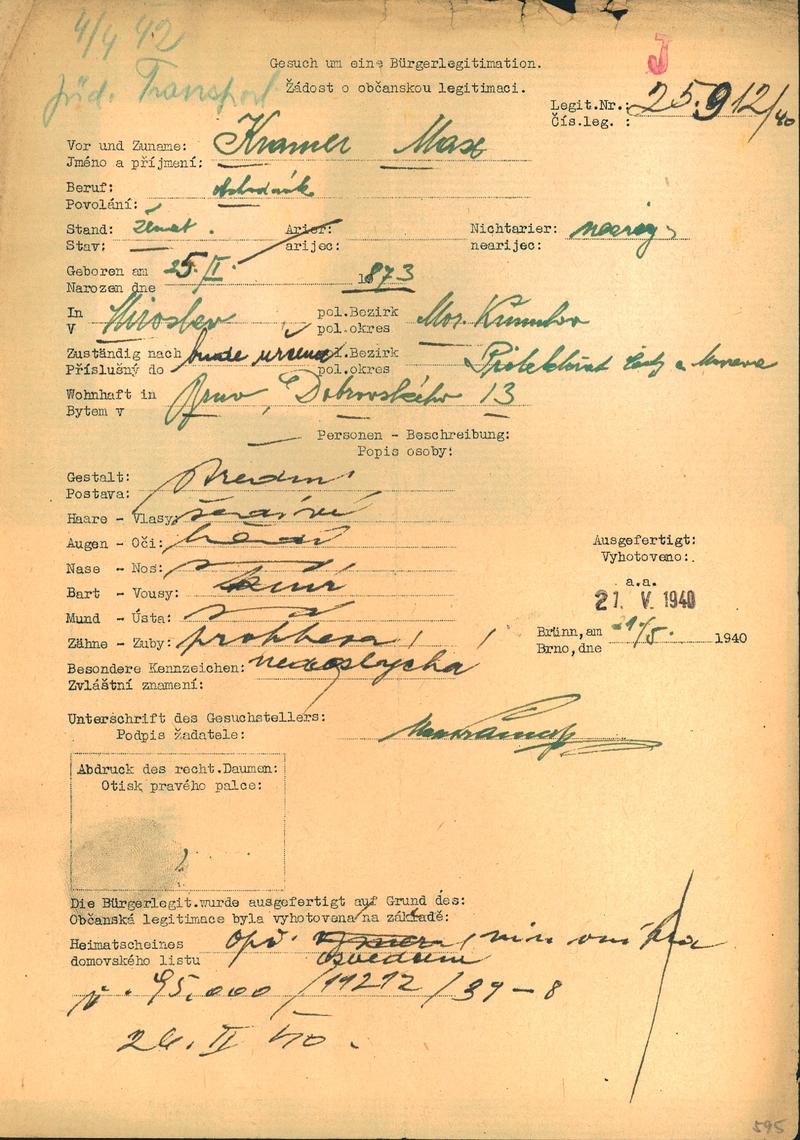 4/4 42
jüd. Transport
J
Gesuch um eine Bürgerlegitimation.
Žádost o občanskou legitimaci.
Legit.Nr.: 25.912/40
Čís.leg. :
Vor und Zuname: Kramer Max
Jméno a příjmení:
Beruf: obchodník
Povolání:
Stand: ženat. Arier: Nichtarier:
Stav: arijec: nearijec:
Geboren am 25/II. 1873
Narozen dne
In Miroslav pol.Bezirk Mor. Krumlov
V pol.okres
Zuständig nach bude určena pol.Bezirk Protektorat Čechy a Morava
Příslušný do pol.okres
Wohnhaft in Brno, Dobrovského 13
Bytem v
Personen - Beschreibung:
Popis osoby:
Gestalt: střední
Postava:
Haare - Vlasy: šedivé
Augen - Oči: hnědé
Nase - Nos:
Bart - Vousy: knír
Mund - Ústa:
Zähne - Zuby:
Besondere Kennzeichen: nedoslýchá
Zvláštní znamení:
Ausgefertigt:
Vyhotoveno:
a.a.
21. V. 1940
Brünn, am 21/5. 1940
Brno, dne
Unterschrift des Gesuchstellers:
Podpis žadatele: Max Kramer
Abdruck des recht.Daumen:
Otisk pravého palce:
Die Bürgerlegit.wurde ausgefertigt auf Grund des:
Občanská legitimace byla vyhotovena na základě:
Heimatscheines opř. min. vnitra
domovského listu osvědčení
č. 45.000/11212/39-8
26. II 40.
595